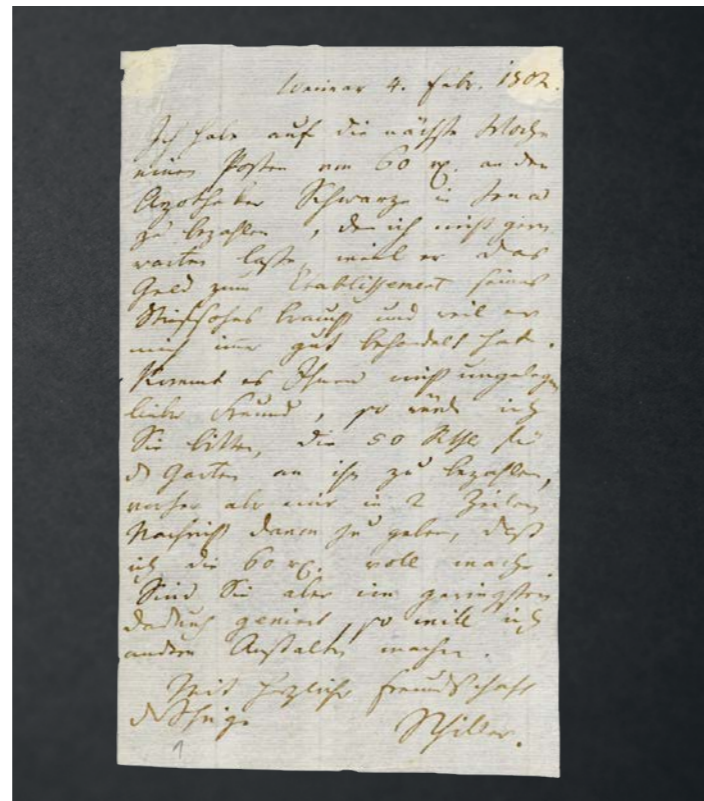 Weimar 4. Febr. 1802.
Ich habe auf die nächste Woche
einen Posten von 60 rh. an den
Apotheker Schwarze in Jena
zu bezahlen, den ich nicht gern
warten lasse, weil er das
Geld zum Etablissement seines
Stiefsohns braucht und weil er
mich immer gut behandelt hat.
Kommt es Ihnen nicht ungelegen
lieber Freund, so würde ich
Sie bitten, die 50 Rthl für
d Garten an ihn zu bezahlen,
vorher aber mir in 2 Zeilen
Nachricht davon zu geben, daß
ich die 60 rh. voll mache.
Sind Sie aber im geringsten
dadurch geniert, so will ich
andere Anstalten machen.
Mit herzlicher Freundschaft
d Ihrige
Schiller.
1